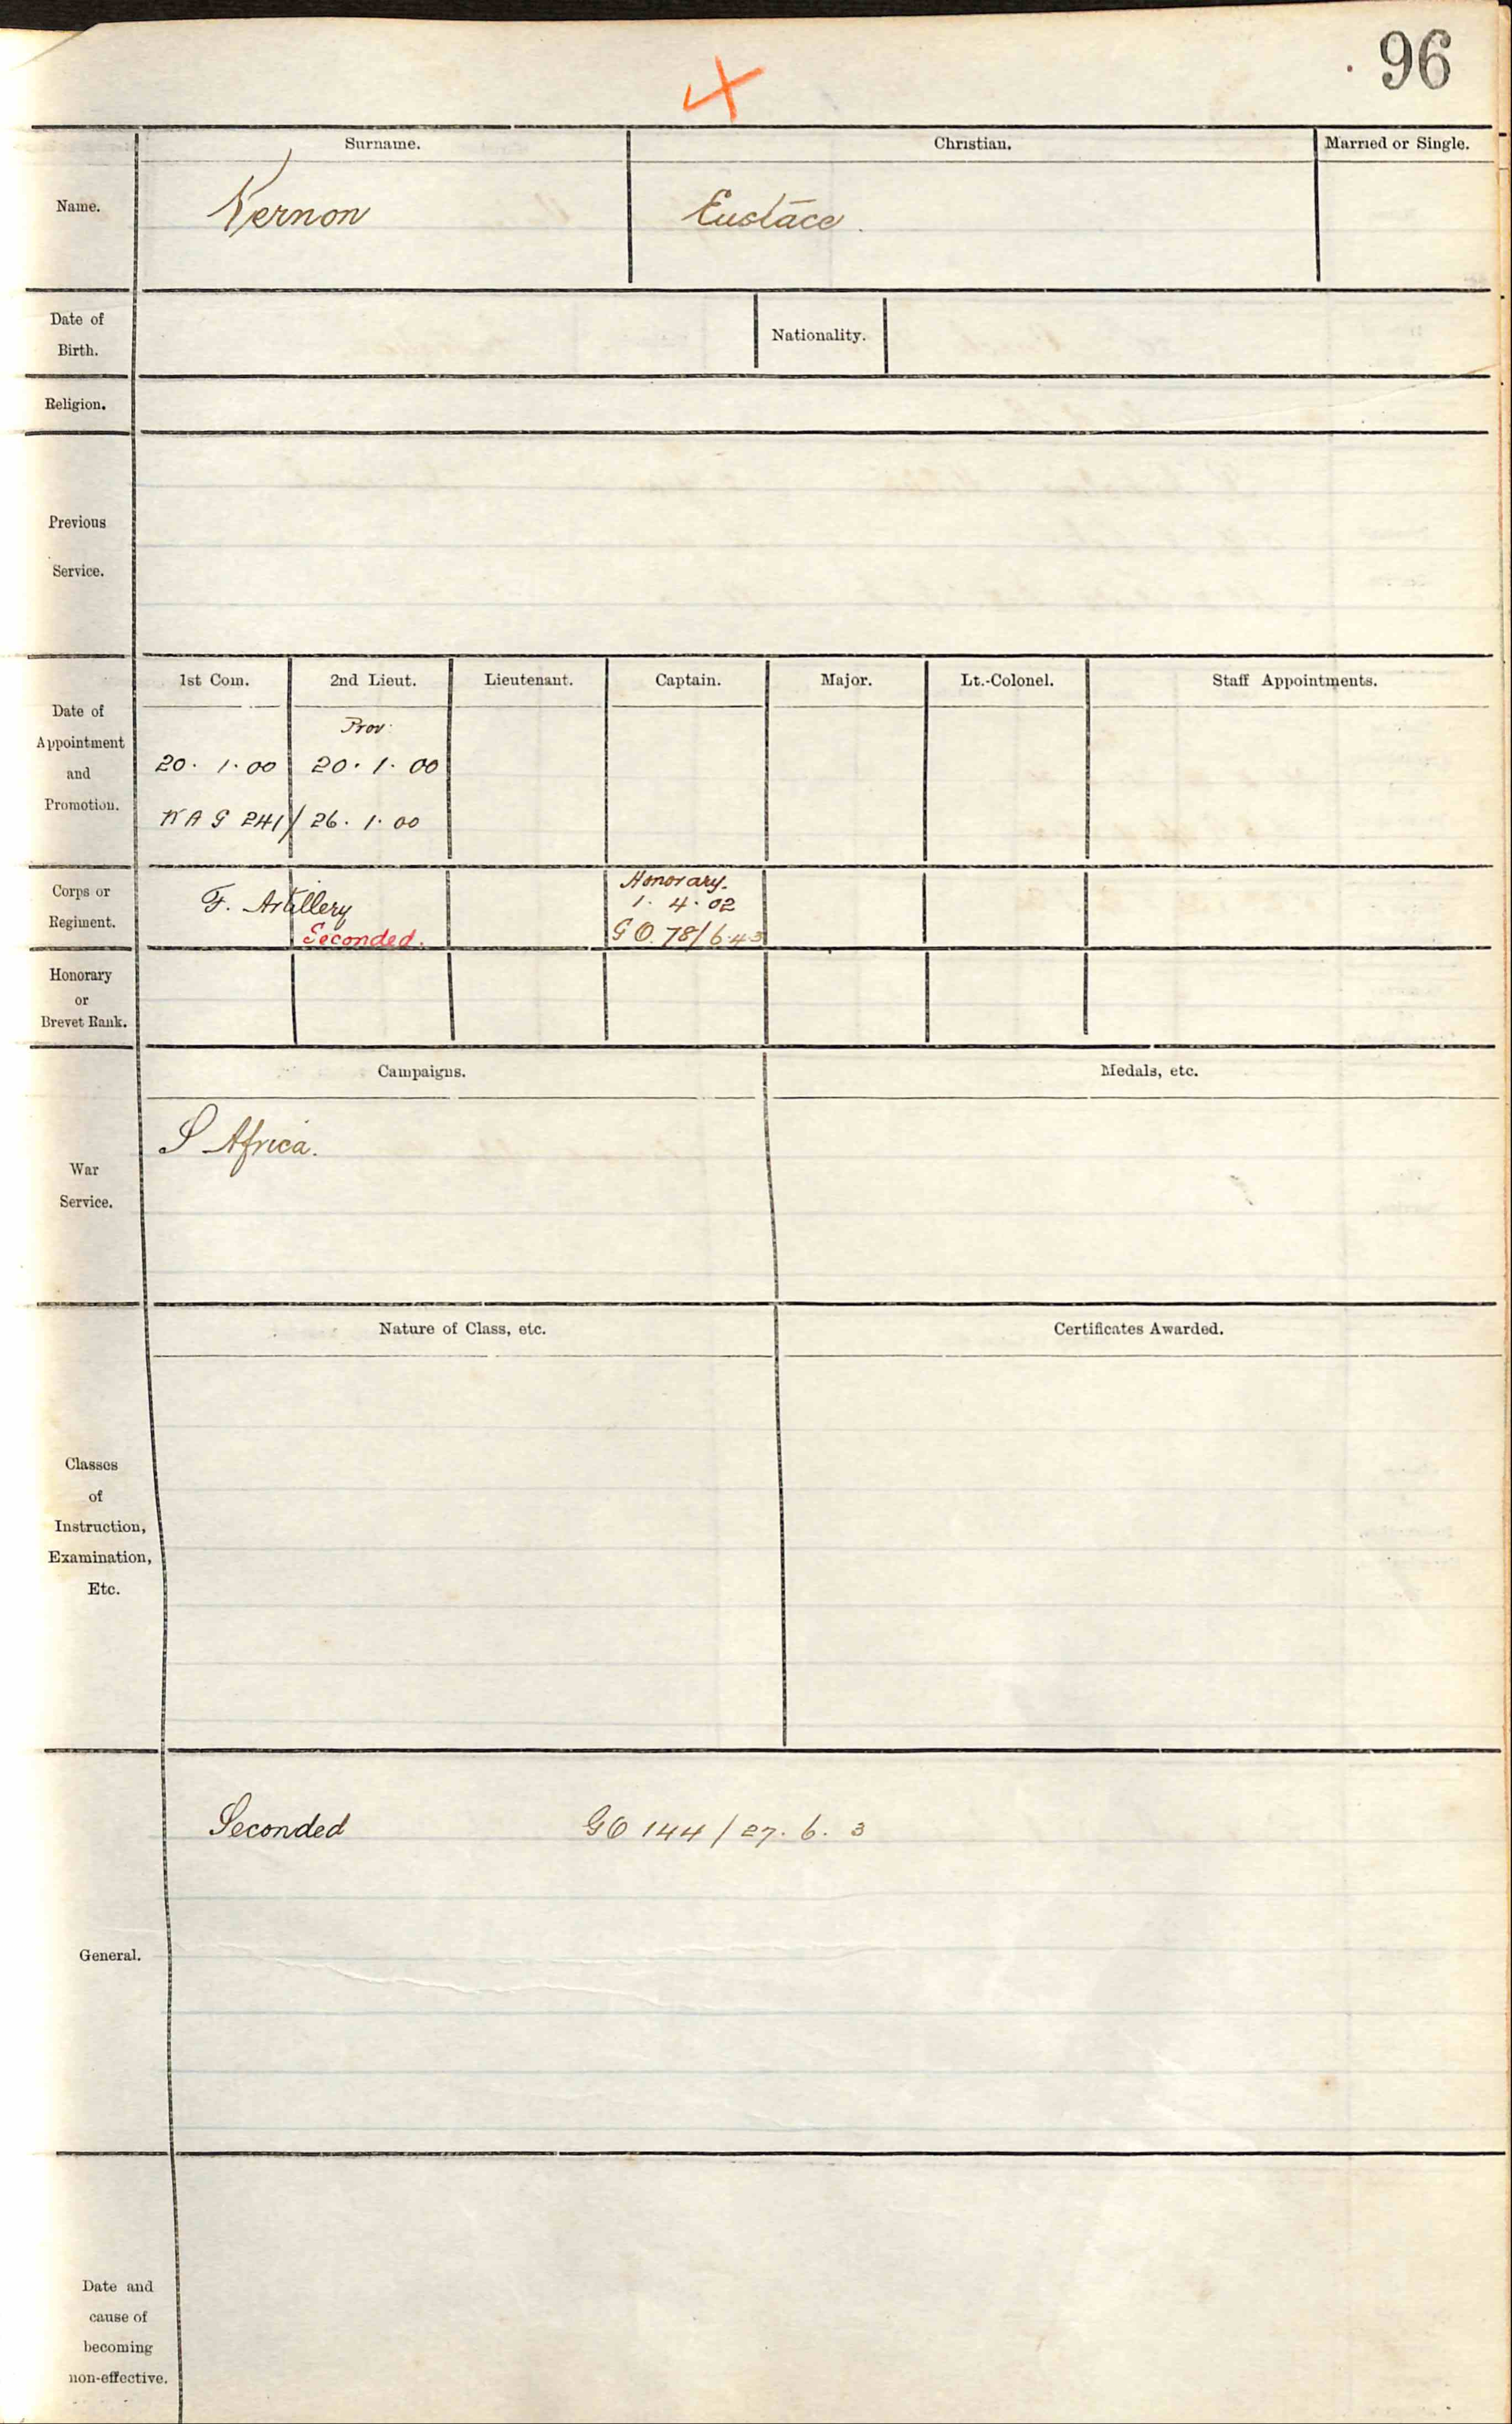 96
Surname. Christian. Married or Single.
Name. Vernon Eustace.
Date of
Birth.
Nationality.
Religion.
Previous
Service.
1st Com. 2nd Lieut. Lieutenant. Captain. Major. Lt.-Colonel. Staff Appointments.
Date of
Appointment
and
Promotion.
Prov.
20. 1. 00 20. 1. 00
WAG 241/ 26. 1. 00
Corps or
Regiment.
F. Artillery
Seconded.
Honorary.
1. 4. 02
GO. 78/6.4.3
Honorary
or
Brevet Rank.
Campaigns. Medals, etc.
War
Service.
S Africa.
Nature of Class, etc. Certificates Awarded.
Classes
of
Instruction,
Examination,
Etc.
Seconded GO 144/27. 6. 3
General.
Date and
cause of
becoming
non-effective.